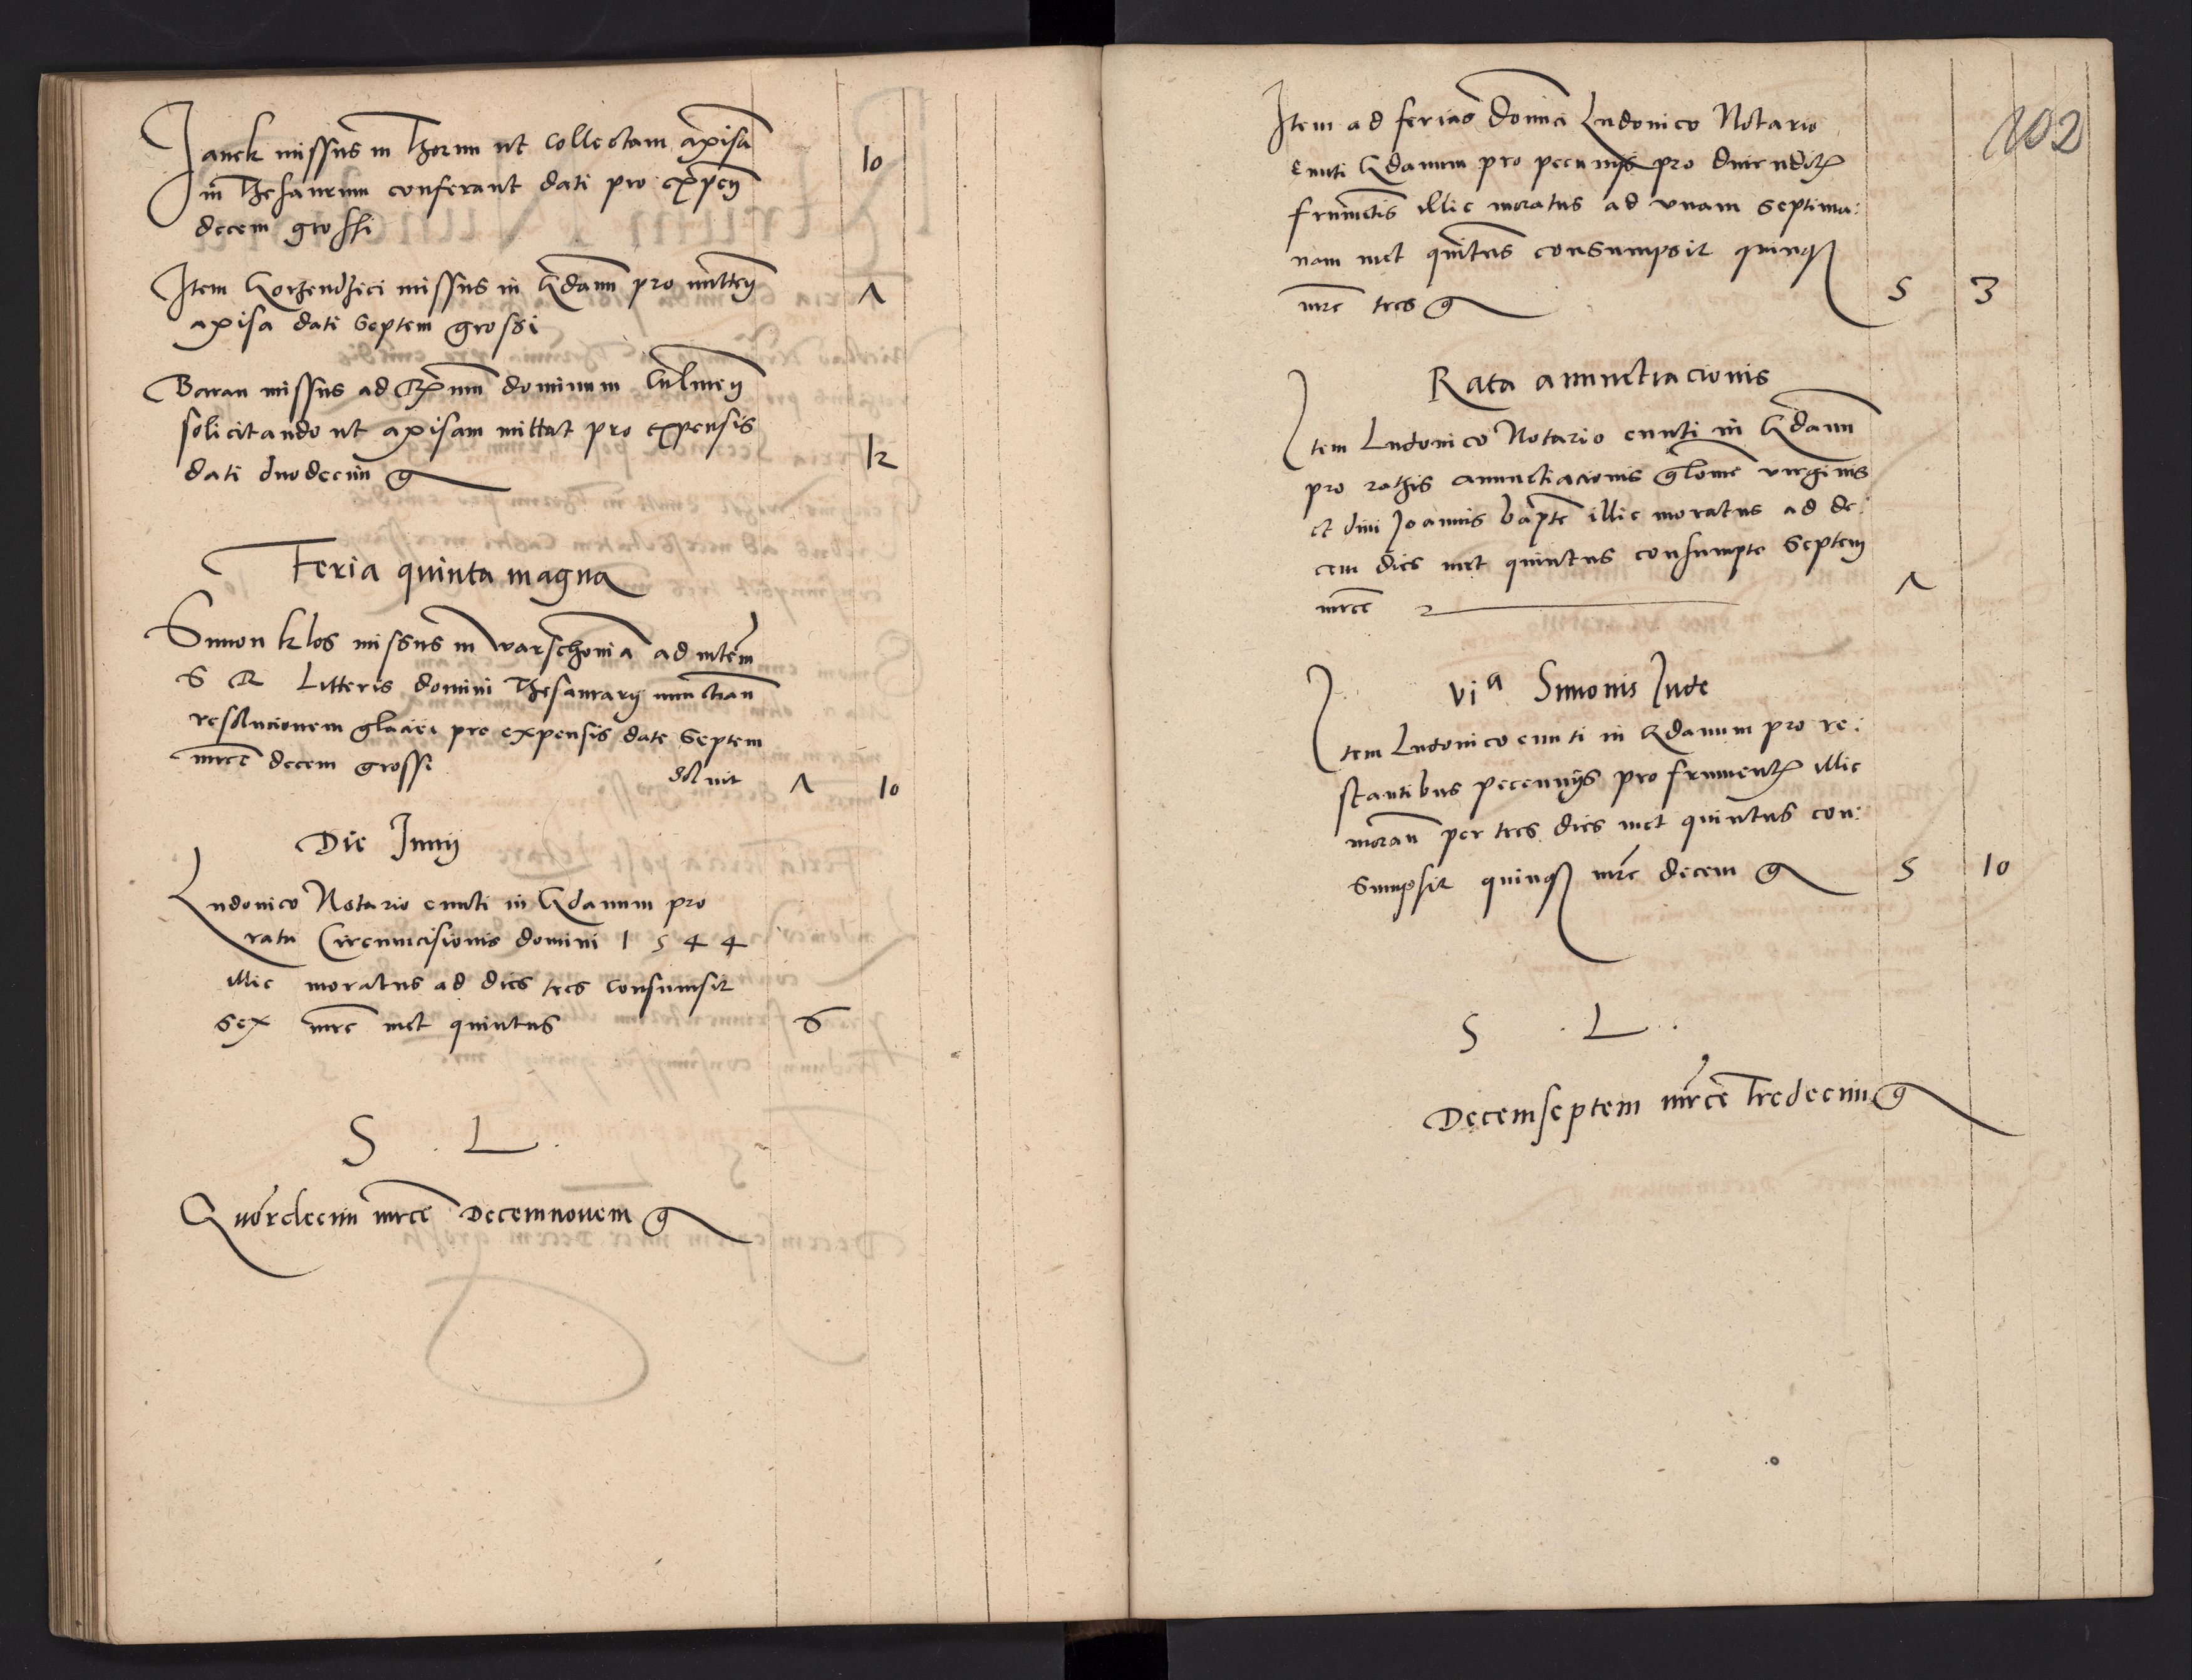 Janek missus in Thorun ut collectam axisa 10
in Thesaurum conferant dati pro expen
decem grossi
Item Gorzendzici missus in Gdanu pro mitten 7
axisa dati septem grossi
Baran missus ad Rx̃mum dominum Culmen
solicitando ut axisam mittat pro expensis
dati duodecim g 12
Feria quinta magna
Simon klos missus in varschovia ad mtem
S R Litteris domini Thesaurarij nunctian
resolucionem glaciei pro expensis date septem
mrce decem grossi soluit 7 10
Die Junij
Ludovico Notario eunti in Gdanum pro
rata Circumcisionis domini 1544
illic moratus ad dies tres consumsit
sex mrc met quintus 6
S . L .
Quordecim mrce Decemnovem g
102
Item ad ferias domini Ludovico Notario
eunti Gdanum pro pecunijs pro divenditis
frumētis illic moratus ad unam septima:
nam met quintus consumpsit quinq
mrc tres g 5 3
Rata anunctiacionis
Item Ludovico Notario eunti in Gdanu
pro rathis anunctiacionis glome virginis
et divi Joannis bapte illic moratus ad de:
cem dies met quinctus consumpte septem
mrce 7
via Simonis Jude
Item Ludovico eunti in Gdanum pro re:
stantibus pecunijs pro frumentis illic
moran per tres dies met quintus con:
sumpsit quinq mrc decem g 5 10
S . L .
Decemseptem mrce Tredecim g